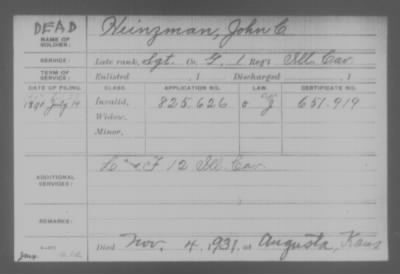 DEAD Heinzman, John C
NAME OF SOLDIER:
SERVICE: Late rank, Sgt. Co. G, 1 Reg't Ill. Cav.
TERM OF SERVICE: Enlisted , 1 Discharged , 1
DATE OF FILING. CLASS. APPLICATION NO. LAW. CERTIFICATE NO.
1890 July 14 Invalid, 825.626 651.919
Widow,
Minor,
ADDITIONAL SERVICES: L & F 12 Ill Cav
REMARKS:
Died Nov. 4, 1931, at Augusta, Kans